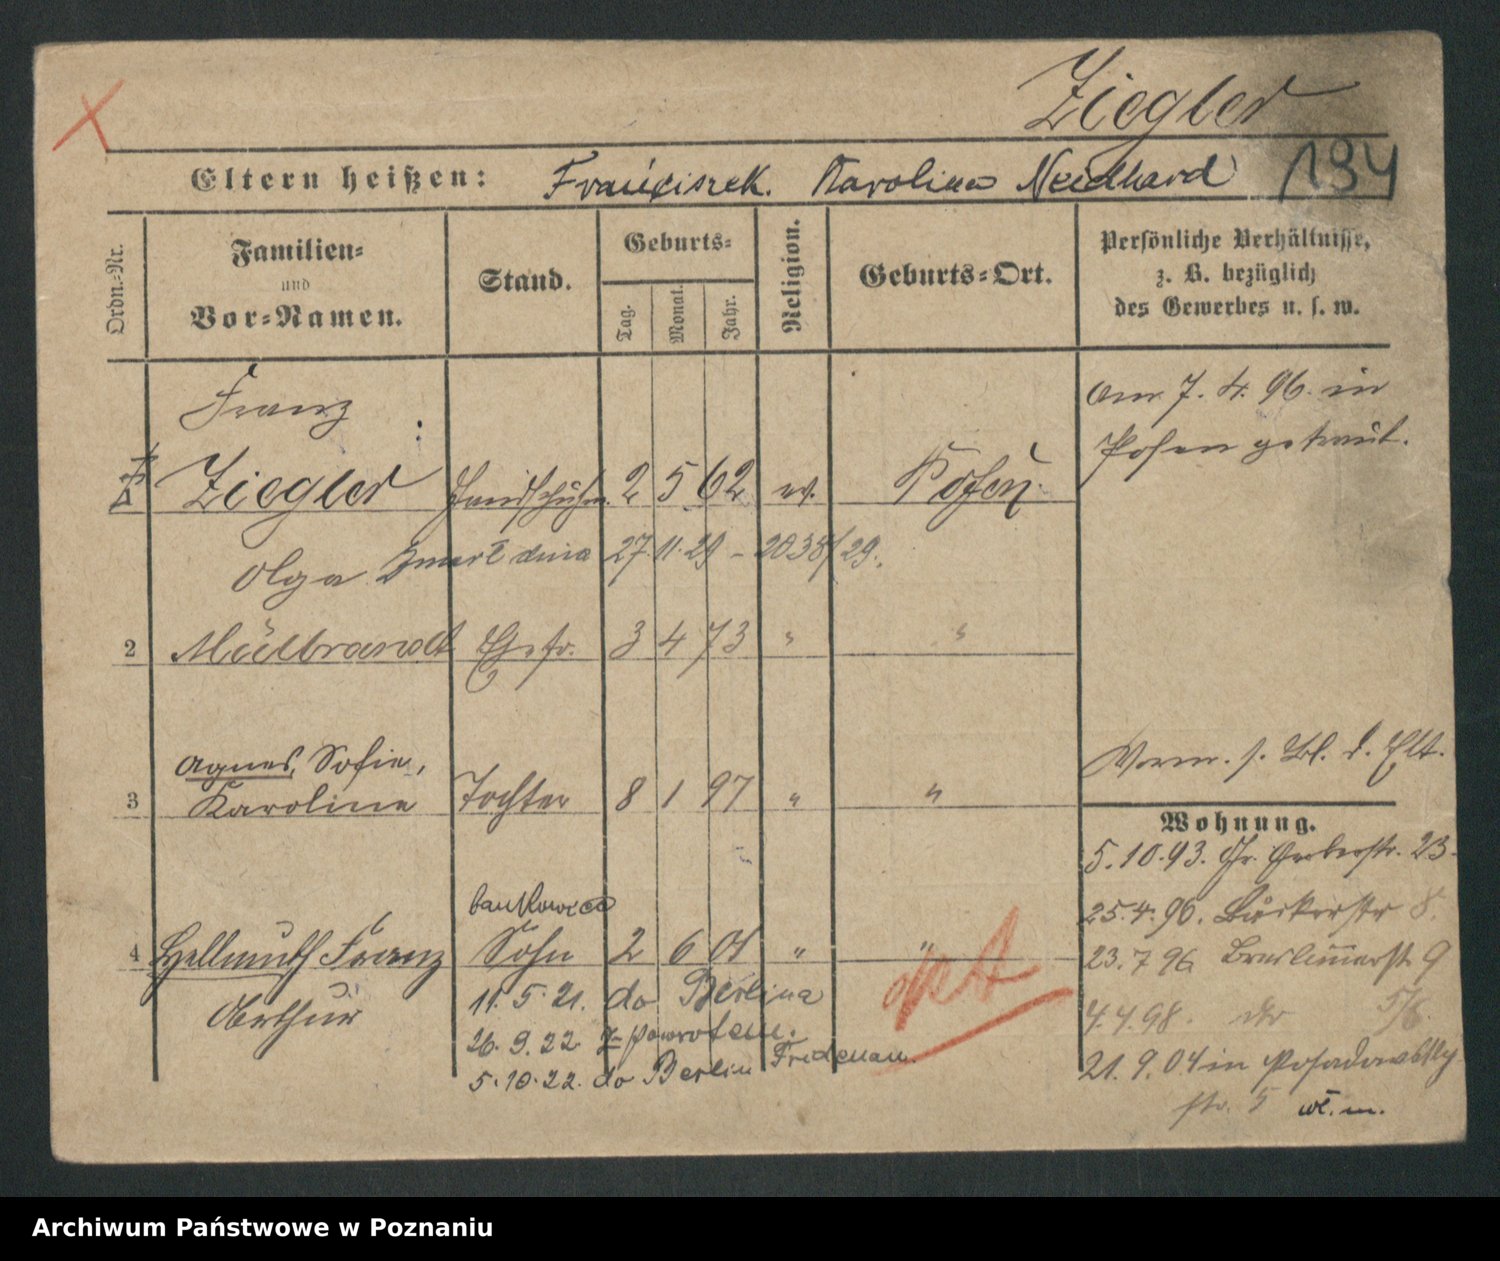 Ziegler
Eltern heißen: Franciszek. Karolina Neidhard 134
Ordn.-Nr.
Familien-
und
Vor-Namen.
Stand.
Geburts-
Tag.
Monat.
Jahr.
Religion.
Geburts-Ort.
Persönliche Verhältnisse,
z. B. bezüglich
des Gewerbes u. s. w.
Franz
Ziegler 2 5 62 ev. Posen
am 7. 4. 96. in
Posen getraut.
Olga zmarł dnia 27. 11. 29 - 2038/29.
2 Mülbrandt Ehefr. 3 4 73 " "
Agnes, Sofie,
3 Karoline Tochter 8 1 97 " "
Verm. s. Bl. d. Elt.
Wohnung.
5.10.93. Gr. Gerberstr. 23.
25.4.96. Bäckerstr 8.
23.7.96 Breslauerstr 9
4.4.98. 5/6.
21.9.04 in Posadowsky
str. 5 wł. m.
bankowiec
4 Hellmuth Franz Sohn 2 6 01 " "
Arthur
11.5.21. do Berlina
26.9.22 z powrotem.
5.10.22. do Berlin Fridenau.
Archiwum Państwowe w Poznaniu